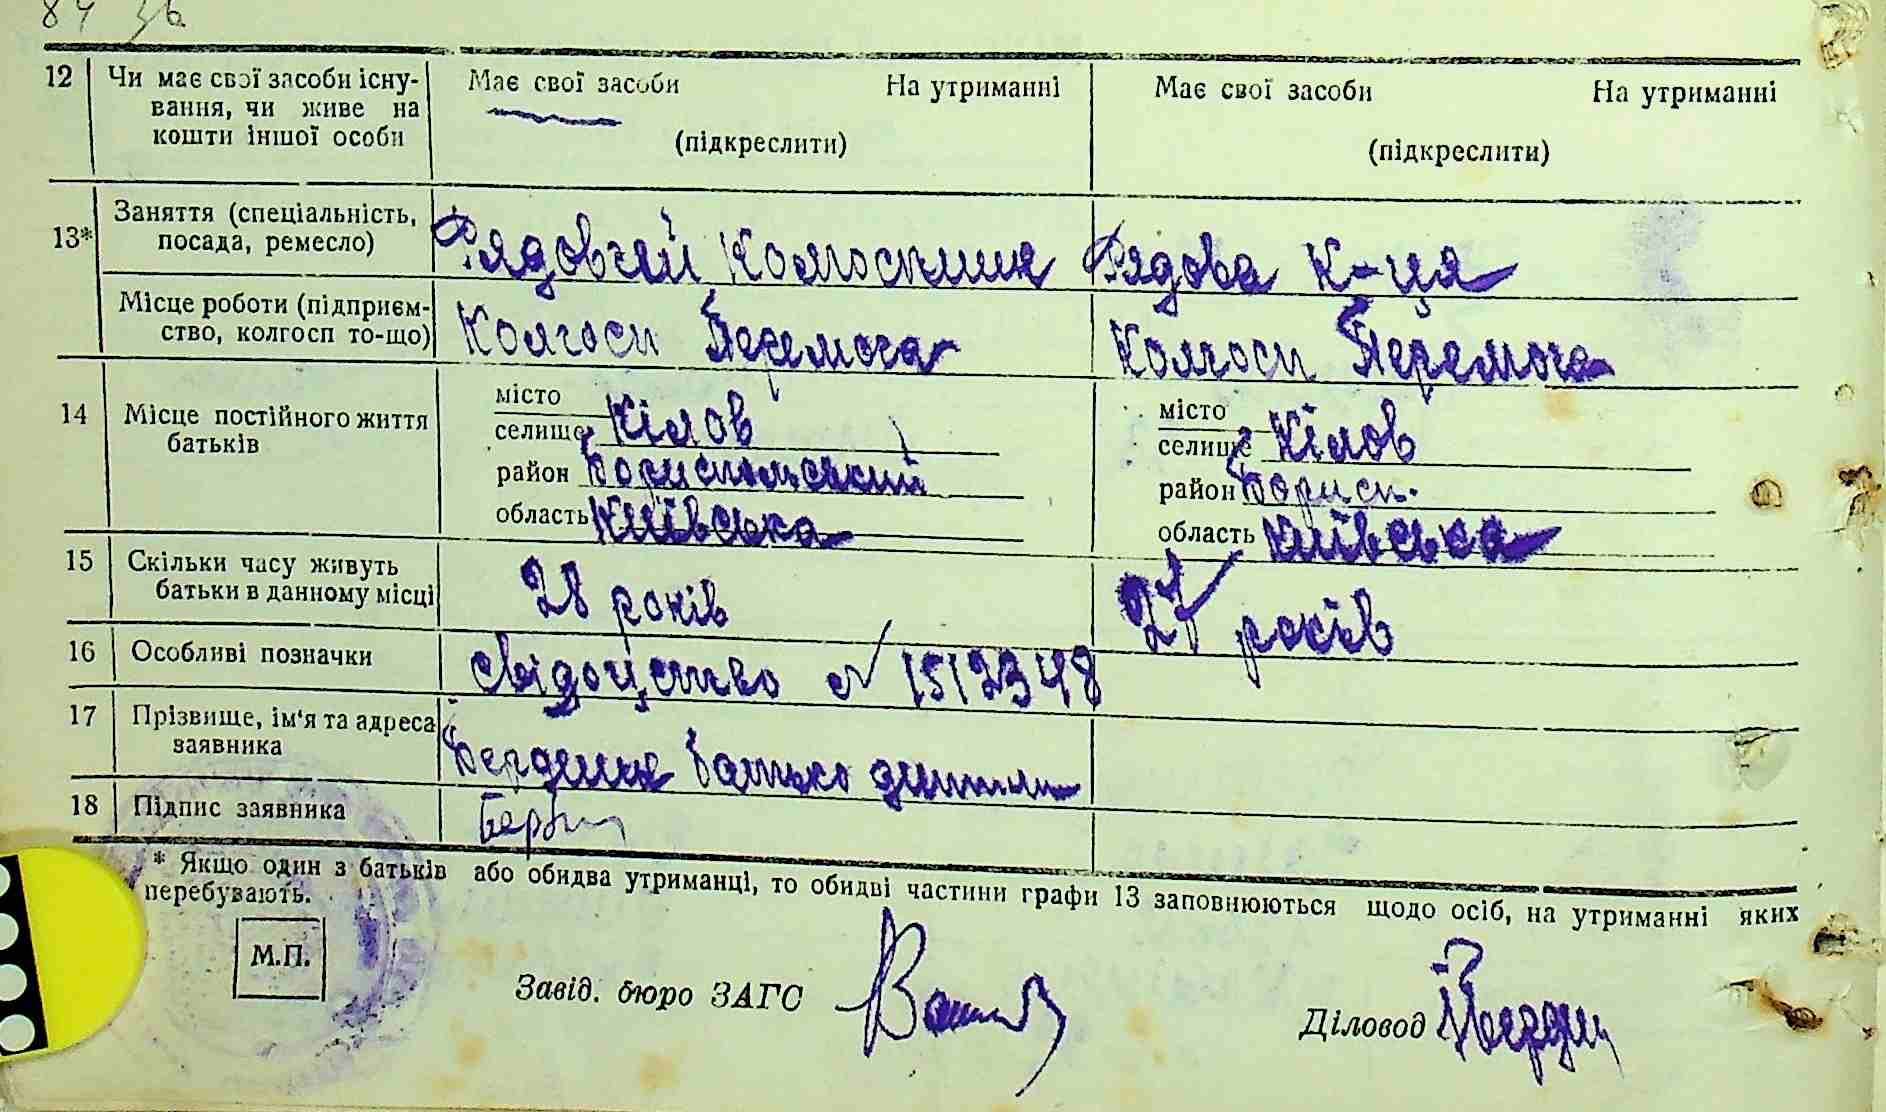 84 зв
12 Чи має свої засоби існу-
вання, чи живе на
кошти іншої особи
Має свої засоби На утриманні
(підкреслити)
Має свої засоби На утриманні
(підкреслити)
13* Заняття (спеціальність,
посада, ремесло)
Рядовий колгоспник Рядова к-ця
Місце роботи (підприєм-
ство, колгосп то-що)
Колгосп Перемога Колгосп Перемога
14 Місце постійного життя
батьків
місто
селище Кілов
район Бориспольський
область Київська
місто
селище Кілов
район Борисп.
область Київська
15 Скільки часу живуть
батьки в данному місці
28 років 27 років
16 Особливі позначки
Свідоцтво № 1512348
17 Прізвище, ім'я та адреса
заявника
батько дитини
18 Підпис заявника
* Якщо один з батьків або обидва утриманці, то обидві частини графи 13 заповнюються щодо осіб, на утриманні яких
перебувають.
М.П.
Завід. бюро ЗАГС
Діловод